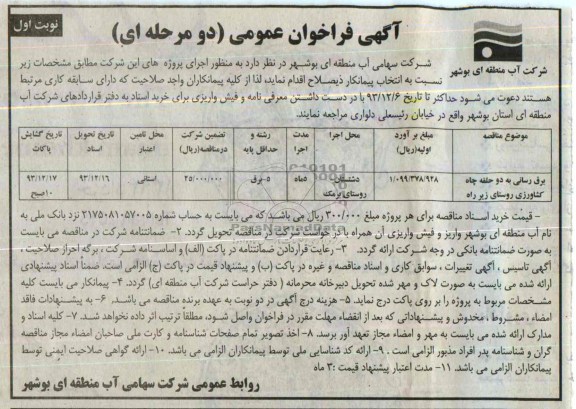 نوبت اول
آگهی فراخوان عمومی (دو مرحله ای)
شرکت آب منطقه ای بوشهر
شرکت سهامی آب منطقه ای بوشهر در نظر دارد به منظور اجرای پروژه های این شرکت مطابق مشخصات زیر
نسبت به انتخاب پیمانکار ذیصلاح اقدام نماید، لذا از کلیه پیمانکاران واجد صلاحیت که دارای سابقه کاری مرتبط
هستند دعوت می شود حداکثر تا تاریخ ۹۳/۱۲/۶ با در دست داشتن معرفی نامه و فیش واریزی برای خرید اسناد به دفتر قراردادهای شرکت آب
منطقه ای استان بوشهر واقع در خیابان رئیسعلی دلواری مراجعه نمایند.
موضوع مناقصه مبلغ برآورد اولیه(ریال) محل اجرا مدت اجرا رشته و حداقل پایه تضمین شرکت درمناقصه(ریال) محل تامین اعتبار تاریخ تحویل اسناد تاریخ گشایش پاکات
برق رسانی به دو حلقه چاه کشاورزی روستای زیر راه ۱/۰۹۹/۳۷۸/۹۲۸ دشتستان روستای بزمک ۵ماه ۵-برق ۲۵/۰۰۰/۰۰۰ استانی ۹۳/۱۲/۱۶ ۹۳/۱۲/۱۷ ۱۰صبح
- قیمت خرید اسناد مناقصه برای هر پروژه مبلغ ۳۰۰/۰۰۰ ریال می باشد که می بایست به حساب شماره ۲۱۷۵۰۸۱۰۵۷۰۰۵ نزد بانک ملی به
نام آب منطقه ای بوشهر واریز و فیش واریزی آن همراه با درخواست شرکت در مناقصه تحویل گردد. ۲- ضمانتنامه شرکت در مناقصه می بایست
به صورت ضمانتنامه بانکی در وجه شرکت ارائه گردد. ۳- رعایت قراردادن ضمانتنامه در پاکت (الف) و اساسنامه شرکت ، برگه احراز صلاحیت ،
آگهی تاسیس ، آگهی تغییرات ، سوابق کاری و اسناد مناقصه و غیره در پاکت (ب) و پیشنهاد قیمت در پاکت (ج) الزامی است. ضمناً اسناد پیشنهادی
ارائه شده می بایست به صورت لاک و مهر شده تحویل دبیرخانه محرمانه ( دفتر حراست شرکت آب منطقه ای) گردد. ۴- پیمانکار می بایست کلیه
مشخصات مربوط به پروژه را بر روی پاکت درج نماید. ۵- هزینه درج آگهی در دو نوبت به عهده برنده مناقصه می باشد. ۶- به پیشنهادات فاقد
امضاء ، مشروط ، مخدوش و پیشنهاداتی که بعد از انقضاء مهلت مقرر در فراخوان واصل شود، مطلقا ترتیب اثر داده نخواهد شد. ۷- کلیه اسناد و
مدارک ارائه شده می بایست به مهر و امضاء مجاز تعهد آور برسد. ۸- اخذ تصویر تمام صفحات شناسنامه و کارت ملی صاحبان امضاء مجاز مناقصه
گران و شناسنامه پدر افراد مذبور الزامی است . ۹- ارائه کد شناسایی ملی توسط پیمانکاران الزامی می باشد. ۱۰- ارائه گواهی صلاحیت ایمنی توسط
پیمانکاران الزامی می باشد. ۱۱- مدت اعتبار پیشنهاد قیمت :۳ ماه
روابط عمومی شرکت سهامی آب منطقه ای بوشهر